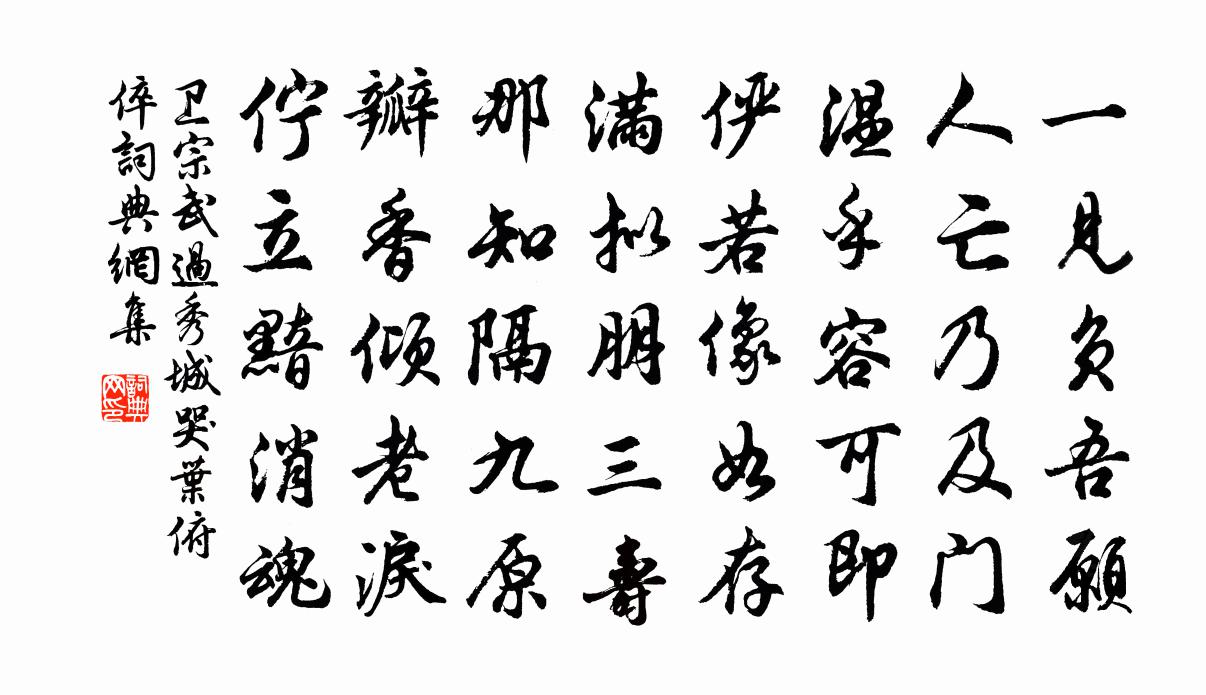 一見負吾願
人亡乃及门
溫乎容可即
俨若像如存
滿拟朋三壽
那知隔九原
瓣香傾老淚
佇立黯消魂
卫宗武過秀城哭葉俯
倅詞典網集
詞典网印